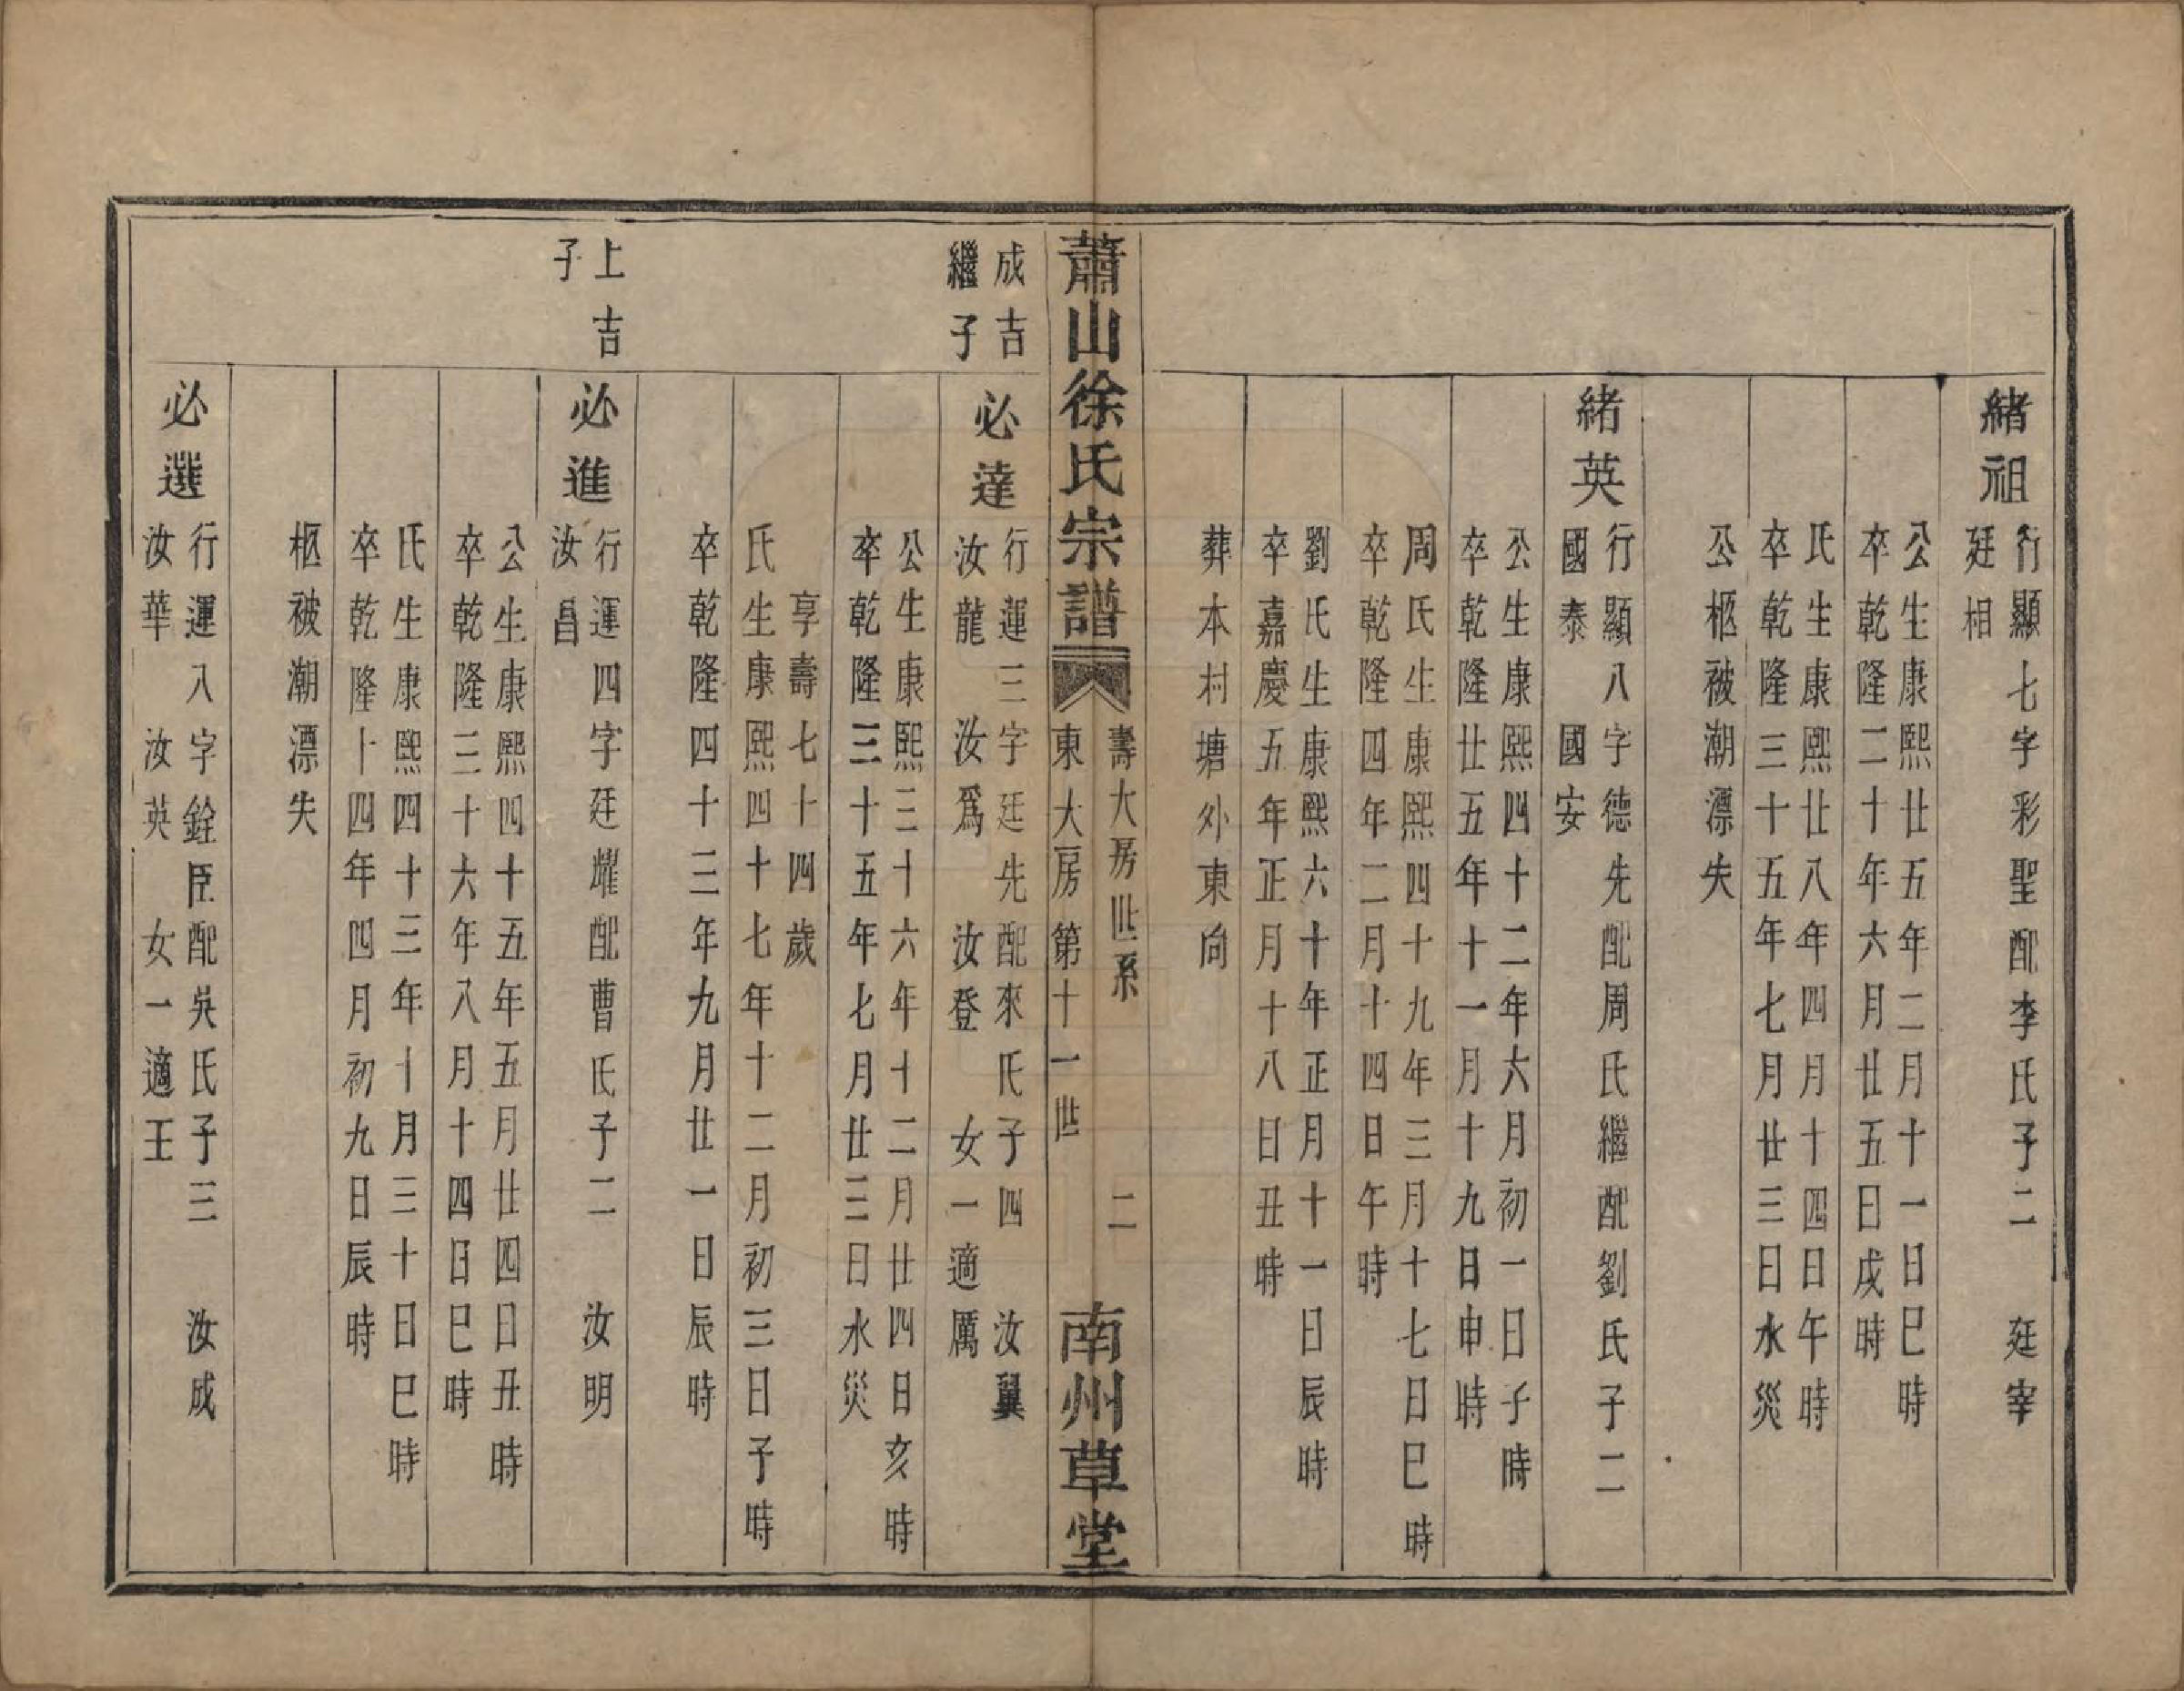 緒祖
行顯七字彩聖配李氏子二　廷宰
廷相
公生康熙廿五年二月十一日巳時
卒乾隆二十年六月廿五日戌時
氏生康熙廿八年四月十四日午時
卒乾隆三十五年七月廿三日水災
公柩被潮漂失
緒英
行顯八字德先配周氏繼配劉氏子二
國泰　國安
公生康熙四十二年六月初一日子時
卒乾隆廿五年十一月十九日申時
周氏生康熙四十九年三月十七日巳時
卒乾隆四年二月十四日午時
劉氏生康熙六十年正月十一日辰時
卒嘉慶五年正月十八日丑時
葬本村塘外東向
蕭山徐氏宗譜
壽大房世系　二
東大房第十一世
南州草堂
成吉
繼子
必達
行運三字廷先配來氏子四　汝翼
汝龍　汝爲　汝登　女一適厲
公生康熙三十六年十二月廿四日亥時
卒乾隆三十五年七月廿三日水災
享壽七十四歲
氏生康熙四十七年十二月初三日子時
卒乾隆四十三年九月廿一日辰時
上吉
子
必進
行運四字廷耀配曹氏子二　汝明
汝昌
公生康熙四十五年五月廿四日丑時
卒乾隆三十六年八月十四日巳時
氏生康熙四十三年十月三十日巳時
卒乾隆十四年四月初九日辰時
柩被潮漂失
必選
行運八字銓臣配吳氏子三　汝成
汝華　汝英　女一適王